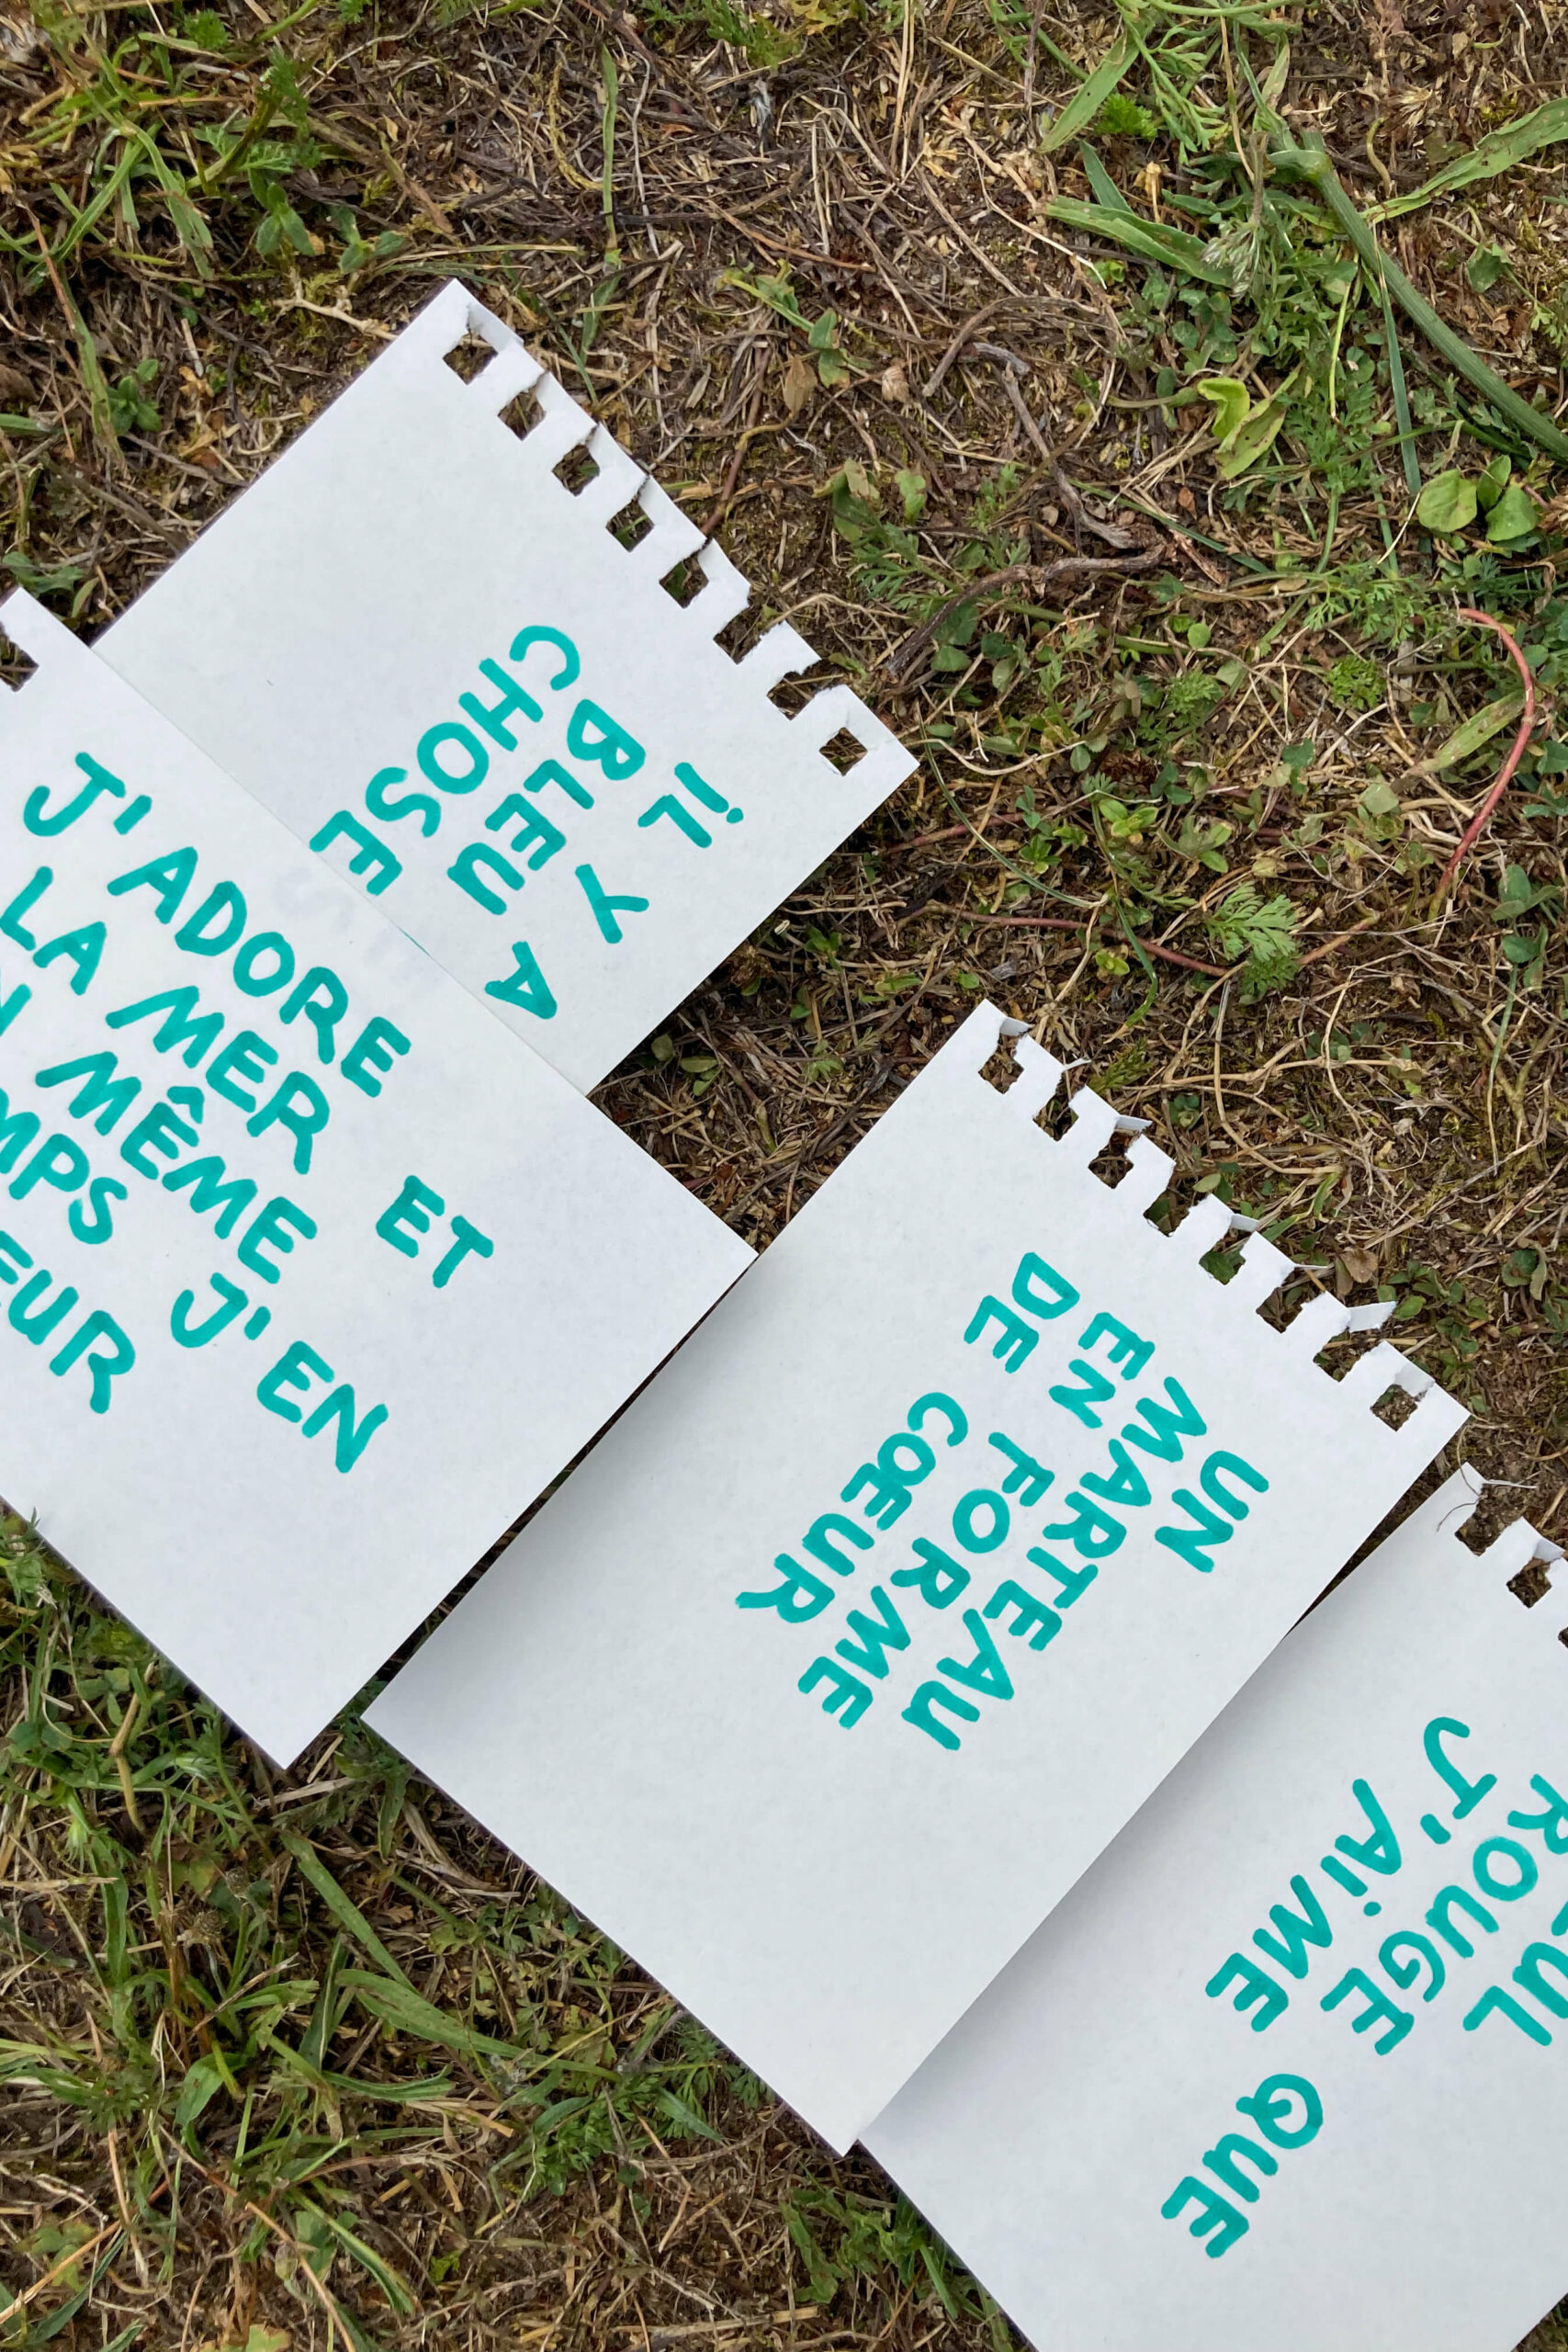 iL Y A
BLEU
CHOSE
J'ADORE
LA MER ET
MÊME
J'EN
UN
MARTEAU
EN FORME
DE CŒUR
ROUGE
J'AiME QUE